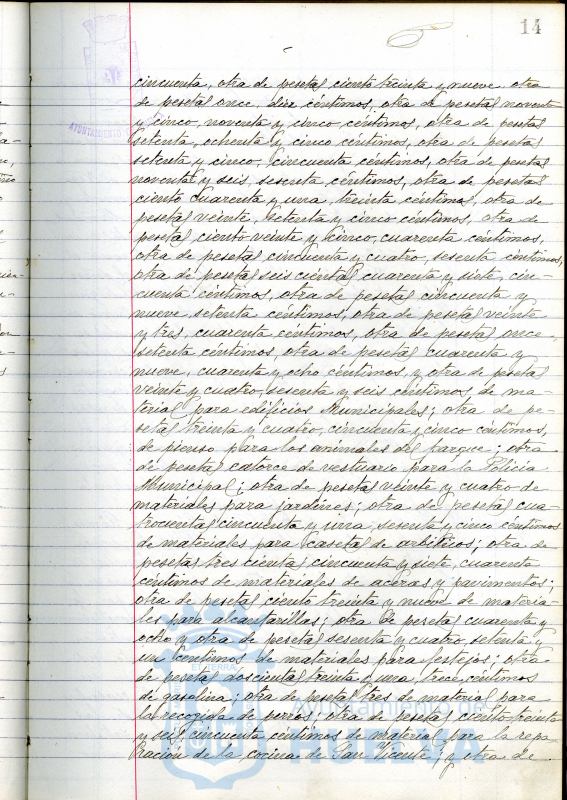 14
cincuenta, otra de pesetas ciento treinta y nueve otra
de pesetas once, diez céntimos, otra de pesetas noventa
y cinco, noventa y cinco céntimos, otra de pesetas
setenta, ochenta y cinco céntimos, otra de pesetas
setenta y cinco, cincuenta céntimos, otra de pesetas
noventa y seis, sesenta céntimos, otra de pesetas
ciento cuarenta y una, treinta céntimos, otra de
pesetas veinte, setenta y cinco céntimos, otra de
pesetas ciento veinte y cinco, cuarenta céntimos,
otra de pesetas cincuenta y cuatro, sesenta céntimos,
otra de pesetas seiscientas cuarenta y siete, cin-
cuenta céntimos, otra de pesetas cincuenta y
nueve, setenta céntimos, otra de pesetas veinte
y tres, cuarenta céntimos, otra de pesetas once,
setenta céntimos, otra de pesetas cuarenta y
nueve, cuarenta y ocho céntimos, y otra de pesetas
veinte y cuatro, sesenta y seis céntimos de ma-
terial para edificios Municipales; otra de pe-
setas treinta y cuatro, cincuenta y cinco céntimos,
de pienso para los animales del parque; otra
de pesetas catorce de vestuario para la Policia
Municipal; otra de pesetas veinte y cuatro de
materiales para jardines; otra de pesetas cua-
trocientas cincuenta y una, sesenta y cinco céntimos
de materiales para casetas de arbitrios; otra de
pesetas trescientas cincuenta y siete, cuarenta
céntimos de materiales de aceras y pavimentos;
otra de pesetas ciento treinta y nueve de materia-
les para alcantarillas; otra de pesetas cuarenta y
ocho y otra de pesetas sesenta y cuatro, setenta y
un centimos de materiales para festejos; otra
de pesetas doscientas treinta y una, trece céntimos
de gasolina; otra de pesetas tres de material para
la recogida de perros; otra de pesetas ciento treinta
y seis, cincuenta céntimos de material para la repa
ración de la cocina de San Vicente; y otra de
Ayuntamiento de
HUELVA